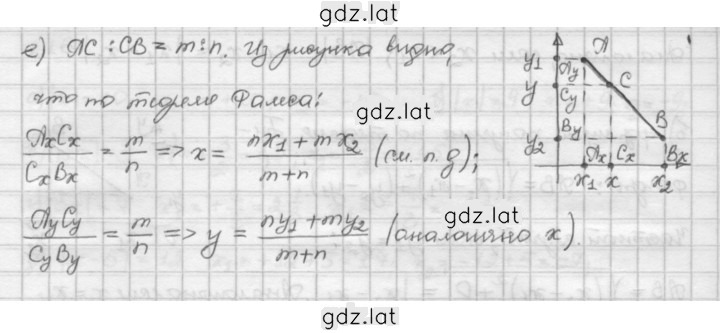 gdz.lat
е) AC : CB = m : n. Из рисунка видно,
что по теореме Фалеса:
gdz.lat
AxCx/CxBx = m/n => x = (nx1 + mx2)/(m+n) (см. п. д);
AyCy/CyBy = m/n => y = (ny1 + my2)/(m+n) (аналогично x).
gdz.lat
gdz.lat
y1 A
Ay
y C
Cy
B
y2 By
Ax Cx Bx
x1 x x2